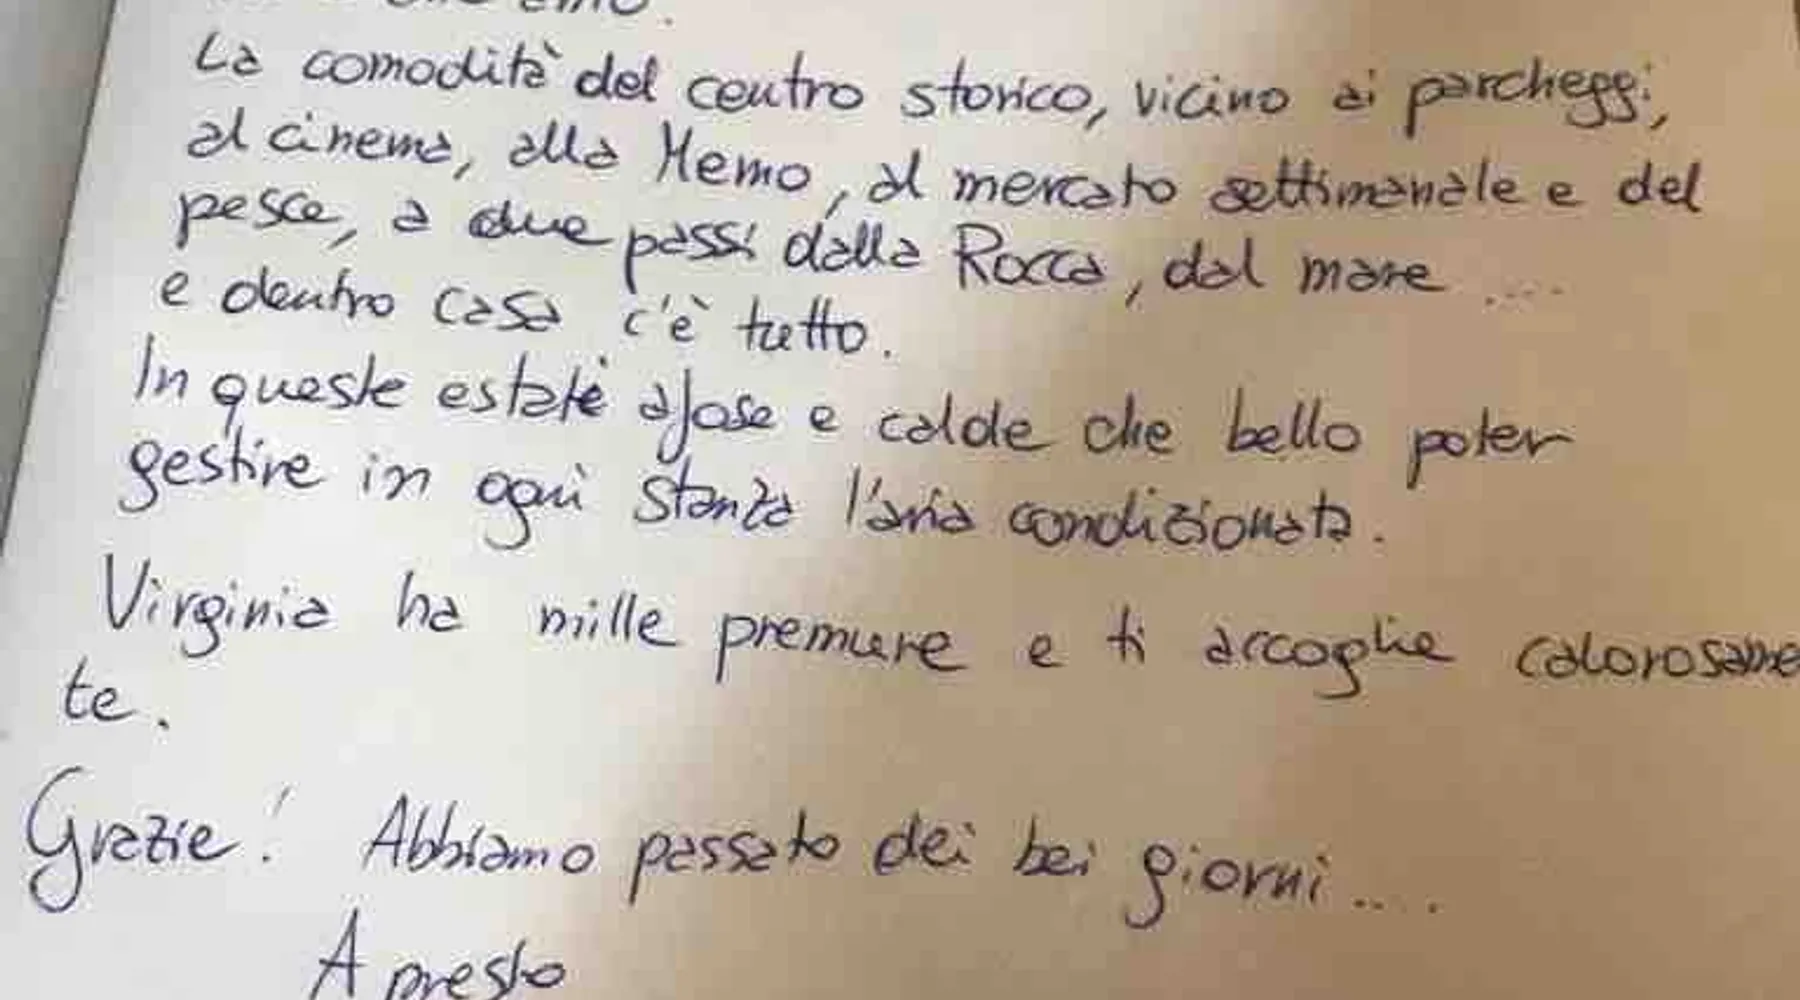 La comodità del centro storico, vicino ai parcheggi,
al cinema, alla Memo, al mercato settimanale e del
pesce, a due passi dalla Rocca, dal mare ....
e dentro casa c'è tutto.
In queste estate afose e calde che bello poter
gestire in ogni stanza l'aria condizionata.
Virginia ha mille premure e ti accoglie calorosame
te.
Grazie! Abbiamo passato dei bei giorni....
A presto